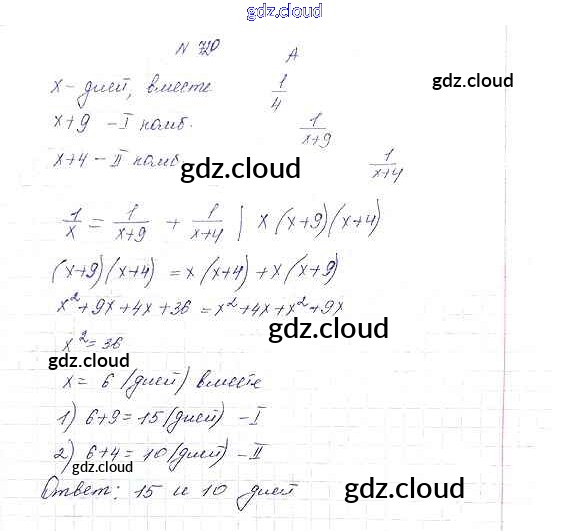 gdz.cloud
N 720 A
x - дней, вместе 1/4
gdz.cloud
x+9 - I комб. 1/(x+9)
x+4 - II комб. 1/(x+4)
gdz.cloud
1/x = 1/(x+9) + 1/(x+4) | x(x+9)(x+4)
(x+9)(x+4) = x(x+4) + x(x+9)
x²+9x+4x+36 = x²+4x+x²+9x
gdz.cloud
x²=36
gdz.cloud
x = 6 (дней) вместе
1) 6+9 = 15 (дней) - I
2) 6+4 = 10 (дней) - II
gdz.cloud
Ответ: 15 и 10 дней
gdz.cloud